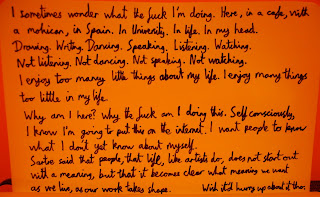 I sometimes wonder what the fuck I'm doing. Here, in a cafe, with
a mohican, in Spain. In University. In life. In my head.
Drawing. Writing. Dancing. Speaking. Listening. Watching.
Not listening. Not dancing. Not speaking. Not watching.
I enjoy too many little things about my life. I enjoy many things
too little in my life.
Why am I here? Why the fuck am I doing this. Self consciously,
I know I'm going to put this on the internet. I want people to know
what I don't yet know about myself.
Sartre said that people, that life, like artists do, does not start out
with a meaning, but that it becomes clear what meaning we want
as we live, as our work takes shape. Wish it'd hurry up about it tho.